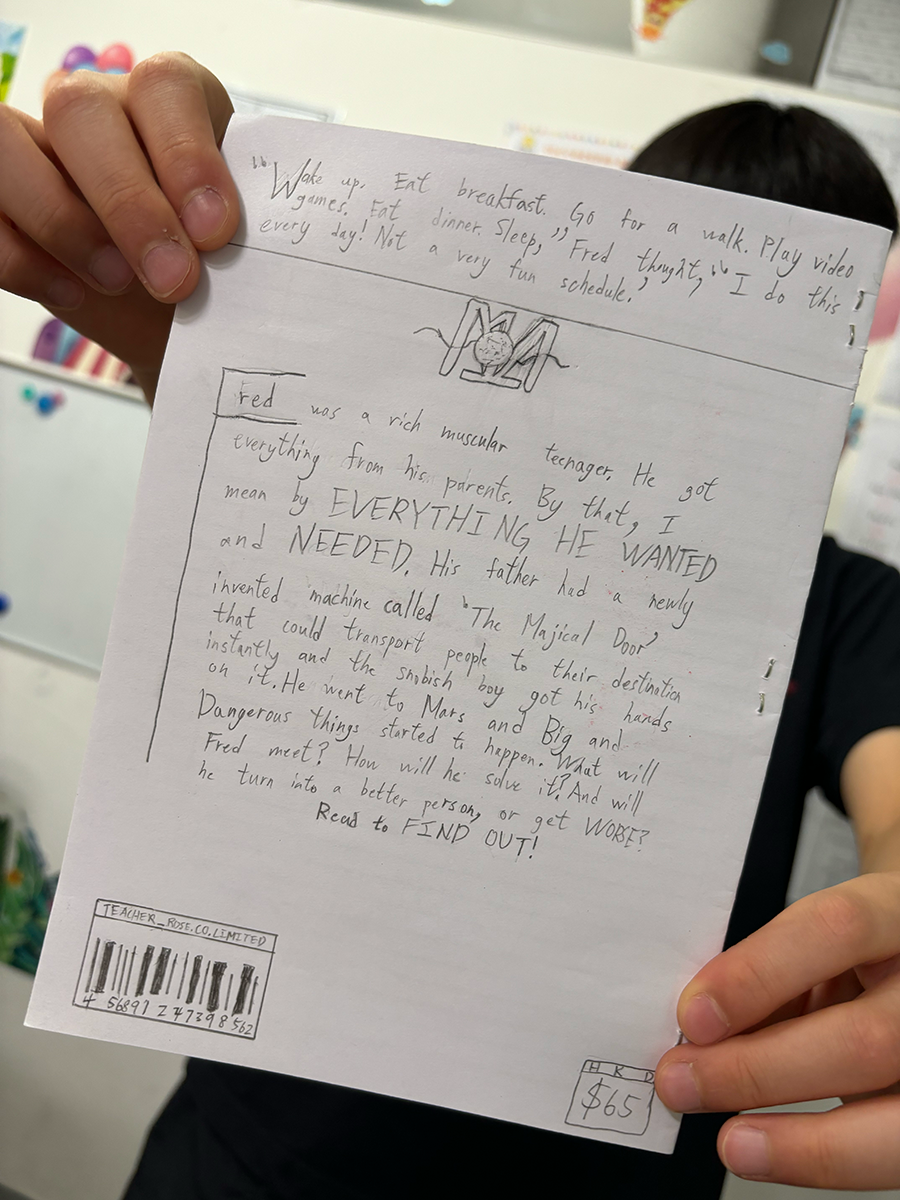 "Wake up. Eat breakfast. Go for a walk. Play video
games. Eat dinner. Sleep," Fred thought, "I do this
every day! Not a very fun schedule.'
MA
Fred was a rich muscular teenager. He got
everything from his parents. By that, I
mean by EVERYTHING HE WANTED
and NEEDED. His father had a newly
invented machine called 'The Majical Door'
that could transport people to their destination
instantly and the snobish boy got his hands
on it. He went to Mars and Big and
Dangerous things started to happen. What will
Fred meet? How will he solve it? And will
he turn into a better person, or get WORSE?
Read to FIND OUT!
TEACHER_ROSE.CO.LIMITED
4 56897 247398 562
HKD
$65